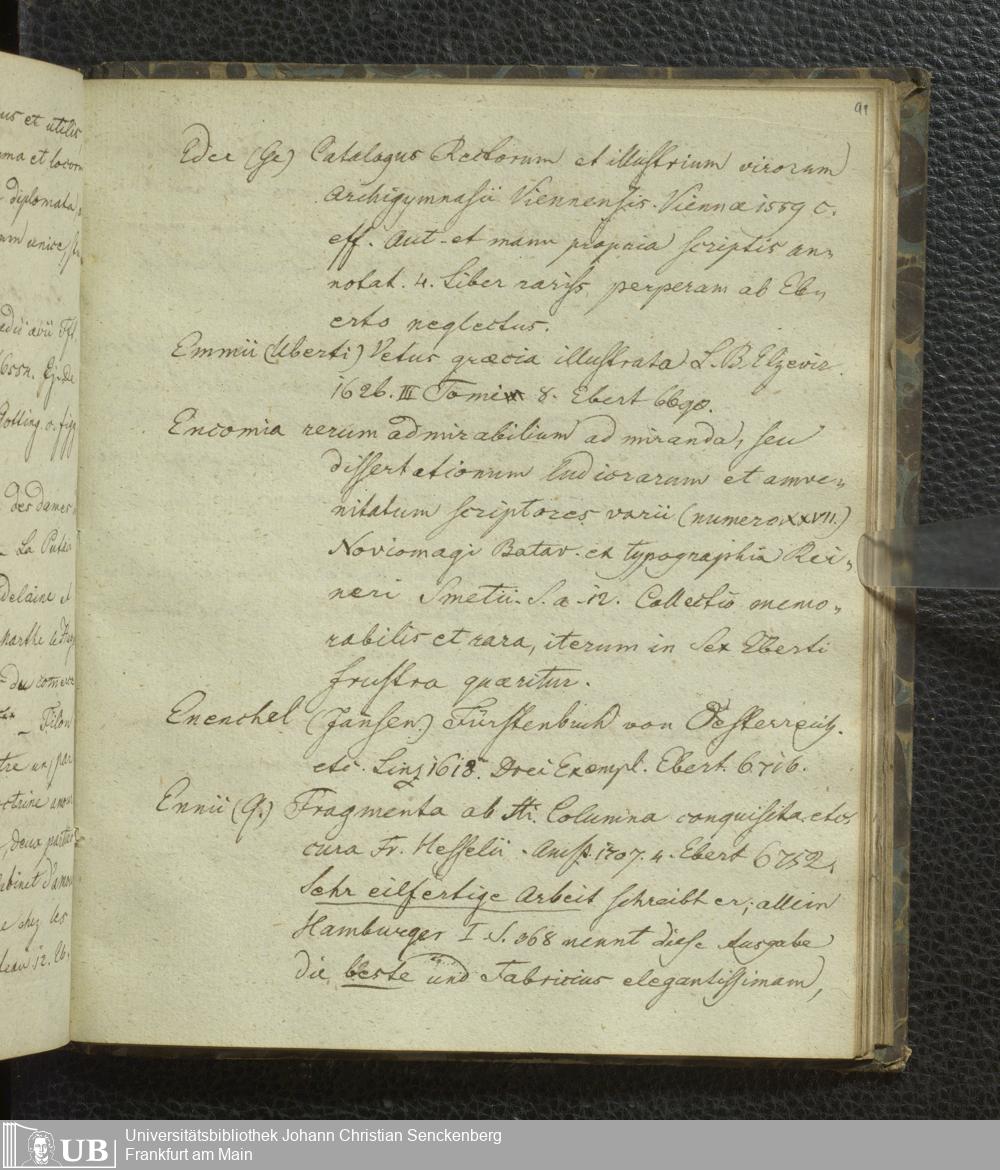 us et utilis
ma et locor
diplomata,
um unice,
1652.
Gotting. c. fig
des dames
_ La Puta
delaine et
Marthe le
du comerce
_ Filon
tre un, par
ctrine amou
, deux parties
abinet d'amou
e chez les
12. Eb.
91
Eder (Ge) Catalogus Rectorum et illustrium virorum
archigymnasii Viennensis. Viennæ 1559 c.
eff. Aut. et manu propria scriptis an„
notat. 4. Liber rariss, perperam ab Eb„
erto neglectus.
Emmii (Uberti) Vetus græcia illustrata L. B. Elzevir.
1626. III Tomi 8. Ebert 6690.
Encomia rerum admirabilium admiranda, seu
dissertationum ludicrarum et amœ„
nitatum scriptores varii (numero XXVII.)
Noviomagi Batav. ex typographia Rei„
neri Smetii. S. a. 12. Collectio memo„
rabilis et rara, iterum in Lex Eberti
frustra quæritur.
Enenchel (Jansen.) Fürstenbuch von Oesterreich.
etc. Linz 1618. Drei Exempl. Ebert. 6716.
Ennii (Q.) Fragmenta ab Hi. Columna conquisita etc
cura Fr. Hesselii. Amst. 1707. 4. Ebert 6752.
Sehr eilfertige Arbeit schreibt er; allein
Hamburger I. S. 368 nennt diese Ausgabe
die beste und Fabricius elegantissimam,
UB
Universitätsbibliothek Johann Christian Senckenberg
Frankfurt am Main